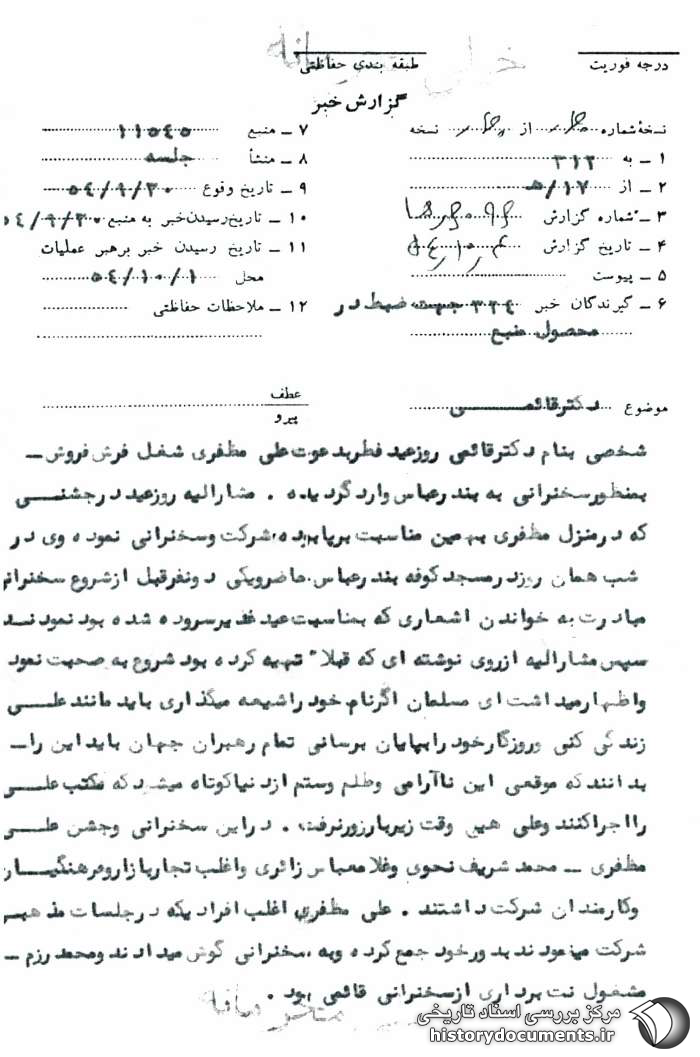 درجه فوریت
طبقه بندی حفاظتی
گزارش خبر
نسخهٔ شماره از نسخه
۱ ـ به ۳۱۲
۲ ـ از ۱۷/ه
۳ ـ شماره گزارش
۴ ـ تاریخ گزارش
۵ ـ پیوست
۶ ـ گیرندگان خبر ۳۳۴ جهت ضبط در
محصول منبع
۷ ـ منبع ۱۱۵۴۵
۸ ـ منشأ جلسه
۹ ـ تاریخ وقوع ۵۴/۹/۳۰
۱۰ ـ تاریخ رسیدن خبر به منبع ۵٤/۹/۳۰
۱۱ ـ تاریخ رسیدن خبر برهبر عملیات
محل ۵۴/۱۰/۱
۱۲ ـ ملاحظات حفاظتی
موضوع دکتر قائمی
عطف
پیرو
شخصی بنام دکتر قائمی روز عید فطر بدعوت علی مظفری شغل فرش فروش ـ
بمنظور سخنرانی به بندرعباس وارد گردیده . مشارالیه روز عید در جشنی
که در منزل مظفری بهمین مناسبت برپا بوده شرکت و سخنرانی نموده وی در
شب همان روز در مسجد کوفه بندرعباس حاضر و یکی دو نفر قبل از شروع سخنرانی
مبادرت به خواندن اشعاری که بمناسبت عید غدیر سروده شده بود نمودند
سپس مشارالیه از روی نوشته ای که قبلا" تهیه کرده بود شروع به صحبت نمود
و اظهار میداشت ای مسلمان اگر نام خود را شیعه میگذاری باید مانند علی
زندگی کنی و روزگار خود را بپایان برسانی تمام رهبران جهان باید این را ـ
بدانند که موقعی این ناآرامی و ظلم و ستم از دنیا کوتاه میشود که مکتب علی
را اجرا کنند و علی هیچ وقت زیر بار زور نرفت . در این سخنرانی و جشن علی
مظفری ـ محمد شریف نحوی و غلامعباس زائری و اغلب تجار بازار و فرهنگیان
و کارمندان شرکت داشتند . علی مظفری اغلب افرادیکه در جلسات مذهبی
شرکت مینمودند بدور خود جمع کرده و به سخنرانی گوش میدادند و محمد رزم ـ
مشغول نت برداری از سخنرانی قائمی بود .
مرکز بررسی اسناد تاریخی
historydocuments.ir